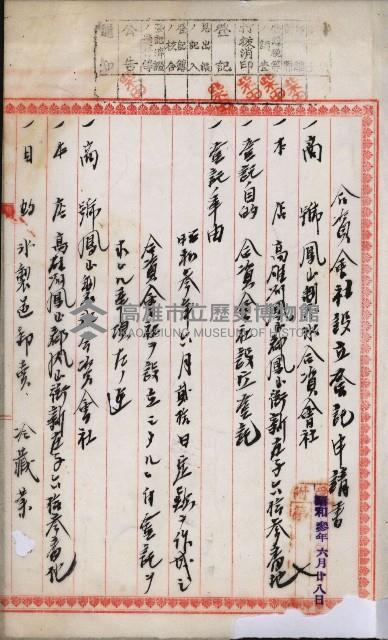 合資會社設立登記申請書
一商號 鳳山製氷合資會社
一本店 高雄州鳳山郡鳳山街新庄子六拾參番地
一登記ノ目的 合資會社設立登記
一登記ノ事由
昭和參年六月貳拾日定款ヲ作成シ
合資會社ヲ設立シタルニ付登記ヲ
求ムル事項左ノ通
一商號 鳳山製氷合資會社
一本店 高雄州鳳山郡鳳山街新庄子六拾參番地
一目的 氷製造卸賣 冷藏業
昭和參年六月廿八日
登記
公告
高雄市立歷史博物館
KAOHSIUNG MUSEUM OF HISTORY